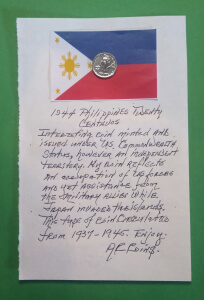 1944 Philippines Twenty
Centavos
Interesting coin minted and
issued under U.S. Commonwealth
Status, however an independent
territory. My coin reflects
an occupation of US forces
and yet assistance from
the military allies while
Japan invaded the islands.
This type of coin circulated
from 1937-1945. Enjoy.